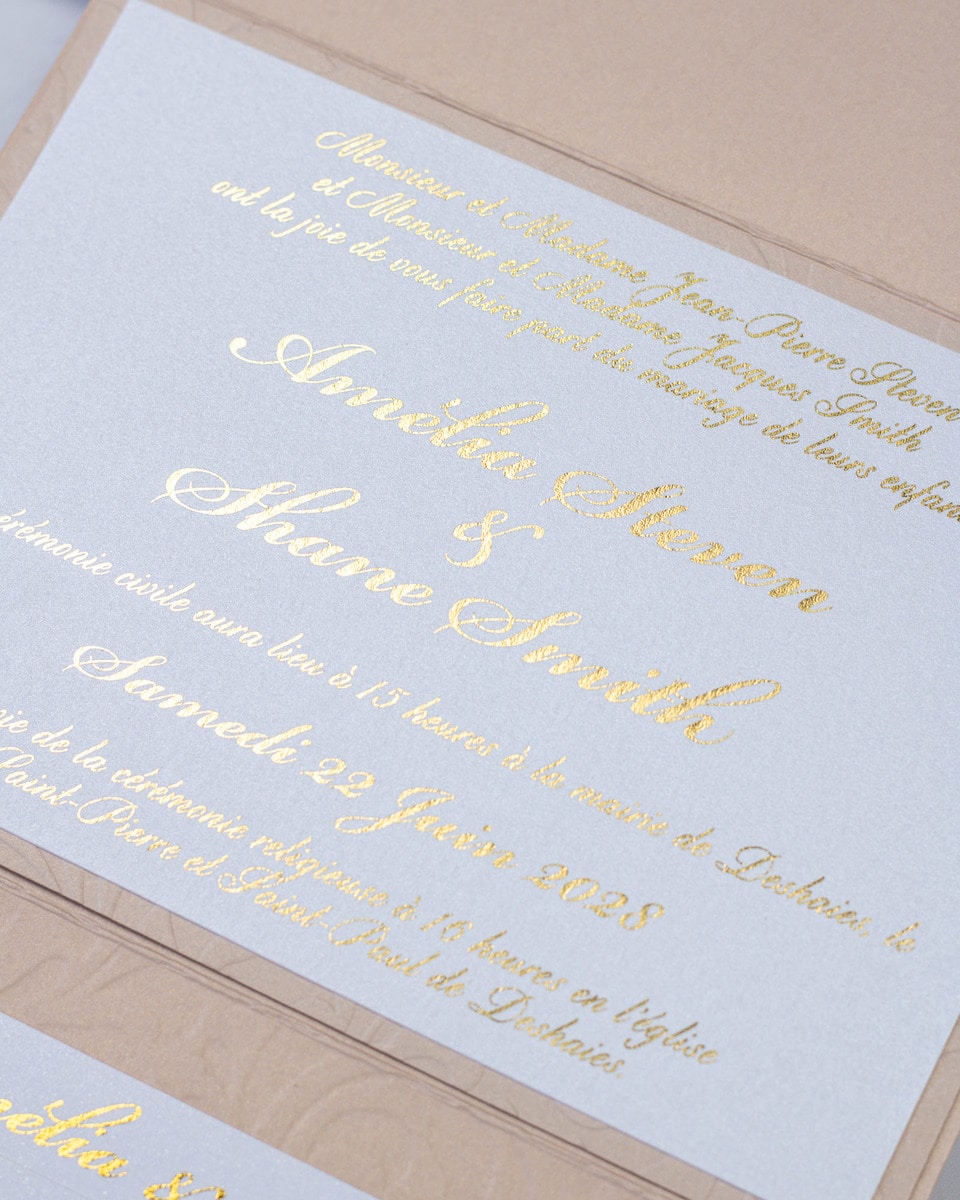 Monsieur et Madame Jean-Pierre Steven
et Monsieur et Madame Jacques Smith
ont la joie de vous faire part du mariage de leurs enfan
Amélia Steven
&
Shane Smith
érémonie civile aura lieu à 15 heures à la mairie de Deshaies, le
Samedi 22 Juin 2028
ie de la cérémonie religieuse à 16 heures en l'église
Saint-Pierre et Saint-Paul de Deshaies.
élia &